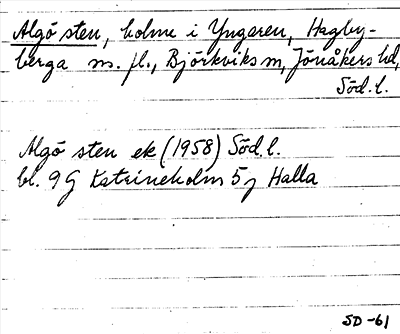 Algö sten, holme i Yngaren, Hagby-
berga m. fl., Björkviks sn, Jönåkers hd,
Söd. l.
Algö sten ek (1958) Söd. l.
bl. 9G Katrineholm 5j Halla
SD-61